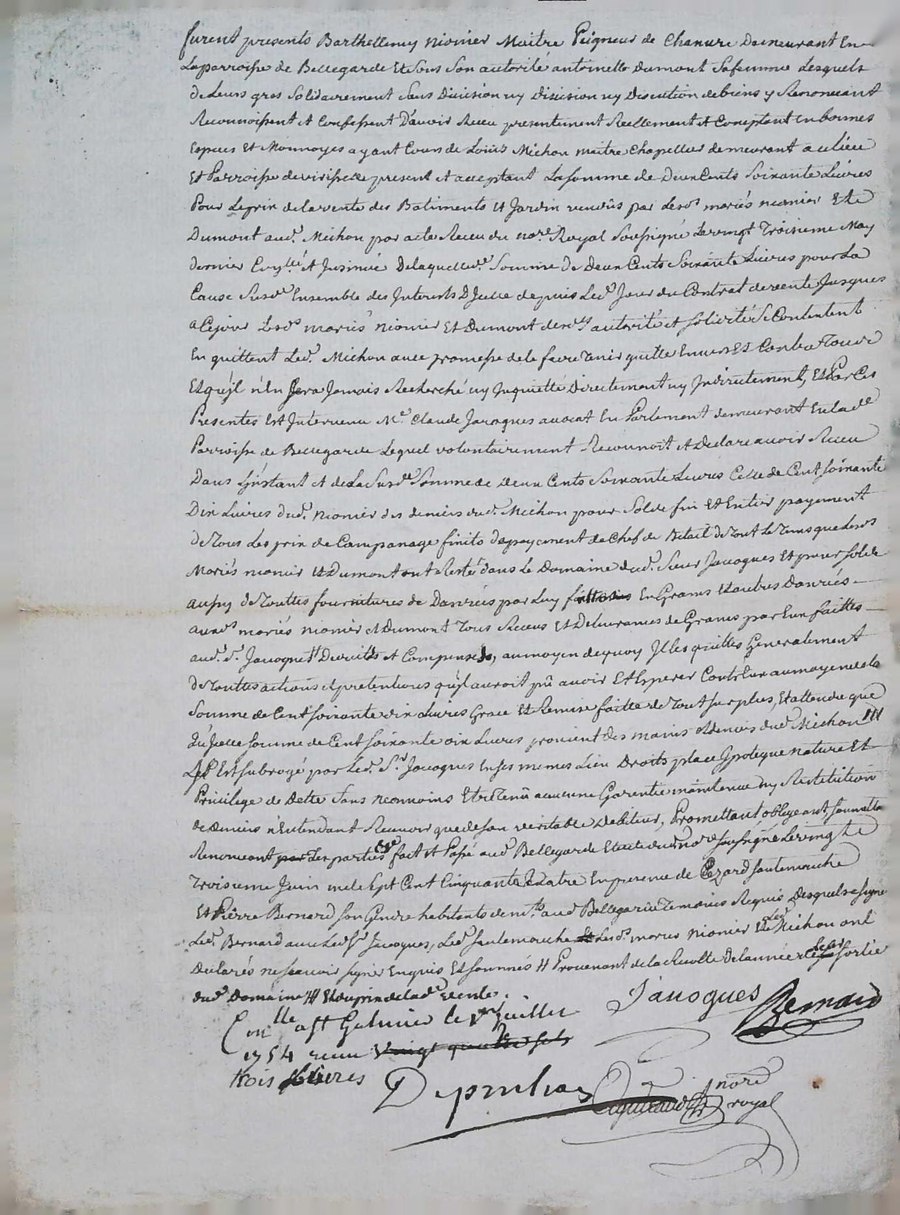 furent presents Barthellemy nionier Maitre Peigneur de Chanvre Demeurant En
La parroisse de Bellegarde Et Sous Son autorité antoinette Dumont Sa femme Lesquels
de Leurs gres Solidairement Sans Division ny Discution de biens y Renonceant
Reconnoissent et Confessent D'avoir Receu presentement Reellement et Comptant En bonnes
Especes Et Monnoyes ayant Cours de Louis Michon maitre Chapellier demeurant au lieu
Et Parroisse de present et acceptant La Somme de Deux Cents Soixante Livres
Pour Le prix de la vente des Batiments et Jardin vendus par Lesd. mariés nionier Et
Dumont aud. Michon par acte Receu du no.re Royal Soussigné Le vingt Troisieme May
dernier Con.llé et Insinué De laquelle d. Somme de Deux Cents Soixante Livres pour La
Cause Susd. Ensemble des Interets D'Icelle depuis Led. Jour du Contrat de vente Jusques
a Ce jour Lesd. mariés nionier Et Dumont de sd. autorité et Solidité Se Contentent
En quittent Led. Michon avec promesse de le faire Tenir quitte Envers Et Contre Tous
Et qu'il n'En Sera Jamais Recherché ny Inquietté Directement ny Indirectement, Et Par Ces
Presentes Est Intervenu Me. Claude Javogues avocat En Parlement demeurant En lad.
Parroisse de Bellegarde Lequel volontairement Reconnoit et Declare avoir Receu
Dans L'Instant et de La Susd. Somme de deux Cents Soixante Livres Celle de Cent Soixante
Dix Livres dud. nionier des deniers dud. Michon pour Solde fin Et Entier payement
de Tous Les prix de Campanage finits de payement de Chef de Betail de Tout le Tems que Lesd.
Mariés nionier Et Dumont ont Resté dans Le Domaine dud. Sieur Javogues Et pour Solde
aussy de Touttes fournitures de Danrées par Luy faittes En Grains Et autres Danrées
auxd. mariés nionier et Dumont Tous Receus Et Delivrances de Grains par Eux faittes
aud. Sr. Javogues Deduits et Compensés, au moyen de quoy Il les quittes Generalement
de Touttes actions et pretentions qu'il auroit pû avoir Et Esperer Contr'Eux au moyen de la
Somme de Cent Soixante dix Livres Grace Et Remise faitte de Tout Surplus, Et attendu que
La ditte Somme de Cent Soixante dix Livres provient des mains et deniers dud. Michon
Il Est Subrogé par Led. Sr. Javogues En Ses memes Lieu Droits place Ypoteque nature Et
Privilege de Dette Sans neomoins Etre Tenu aucune Garentie maintenue ny Restitution
de Deniers n'Entendant Recevoir que de Son veritable Debiteur, Promettant obligeant Soumettant
Renonceant Les parties fait et Passé aud. Bellegarde Etude dud. nore. Soussigné Le vingt
Troisieme Juin mil Sept Cent Cinquante Quatre En presence de Cezard Jantemouche
Et Pierre Bernard Son Gendre habitants aud. Bellegarde Temoins Requis Desquels a Signé
Led. Bernard avec Led. Sr. Javogues, Led. Jantemouche Et Lesd. mariés nionier Et Led. Michon ont
Declarés ne Scavoir Signer Enquis Et Sommés # Provenant de la Recolte De l'année de leur Sortie
dud. Domaine # Et du prix de lad. vente.
Javogues Bernard
Con.llé a St Galmier le 1er Juillet
1754 receu vingt quatre sols
trois Livres
nore.
royal